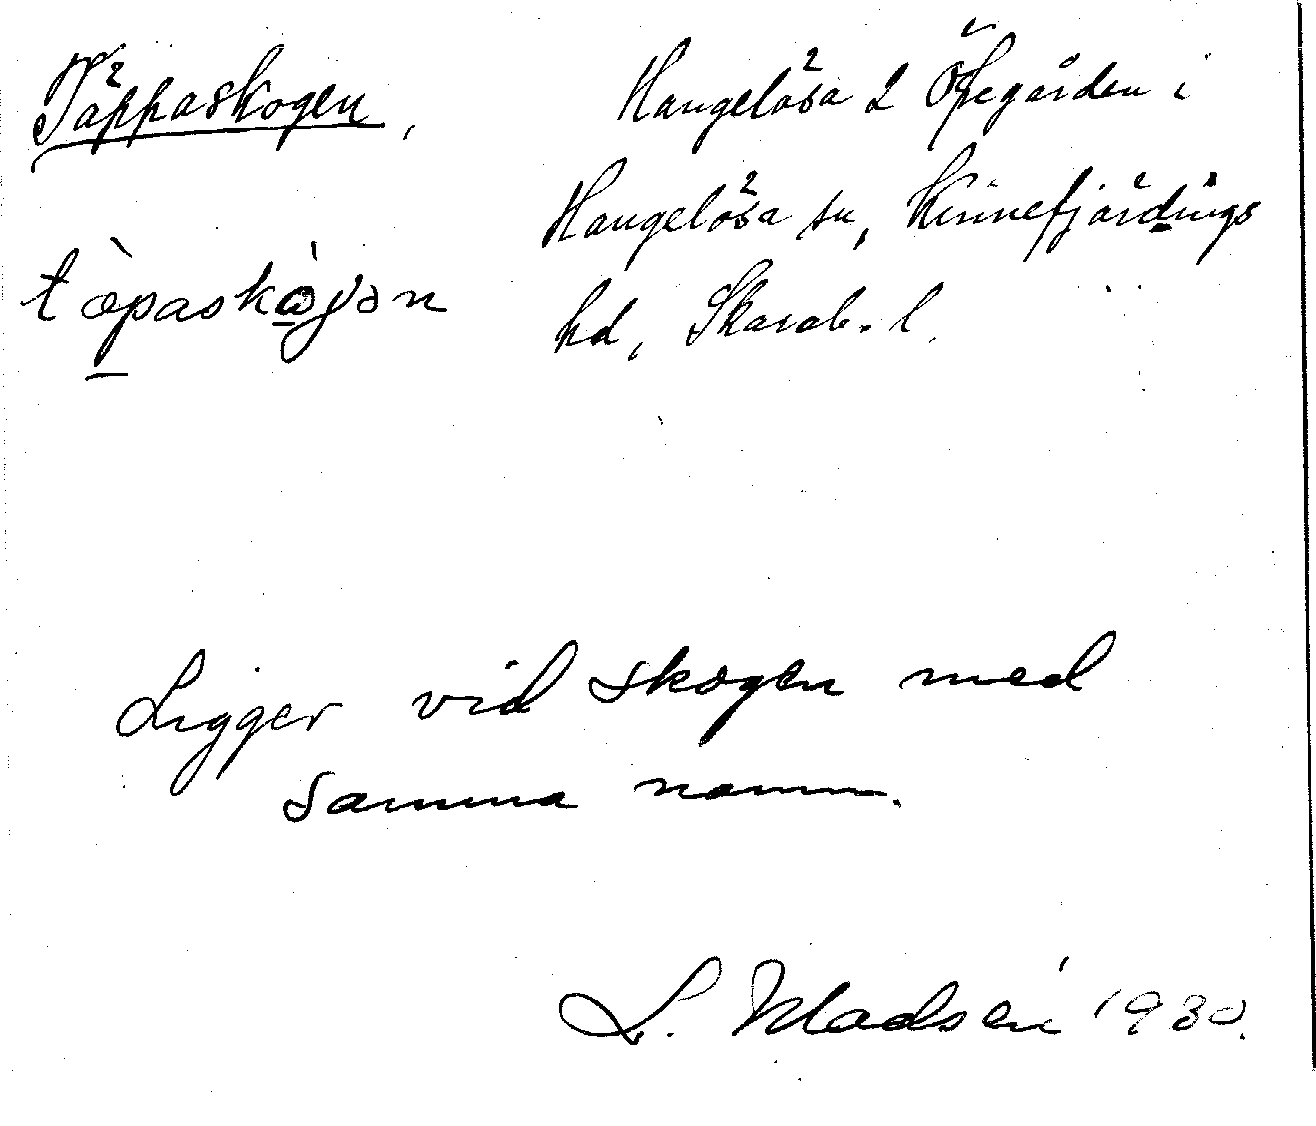 Täppaskogen,
Hangelösa 2 Öfregården i
Hangelösa sn, Kinnefjärdings
hd, Skarab. l.
tæ̀paskòjən
Ligger vid skogen med
samma namn.
L. Madsén 1930.